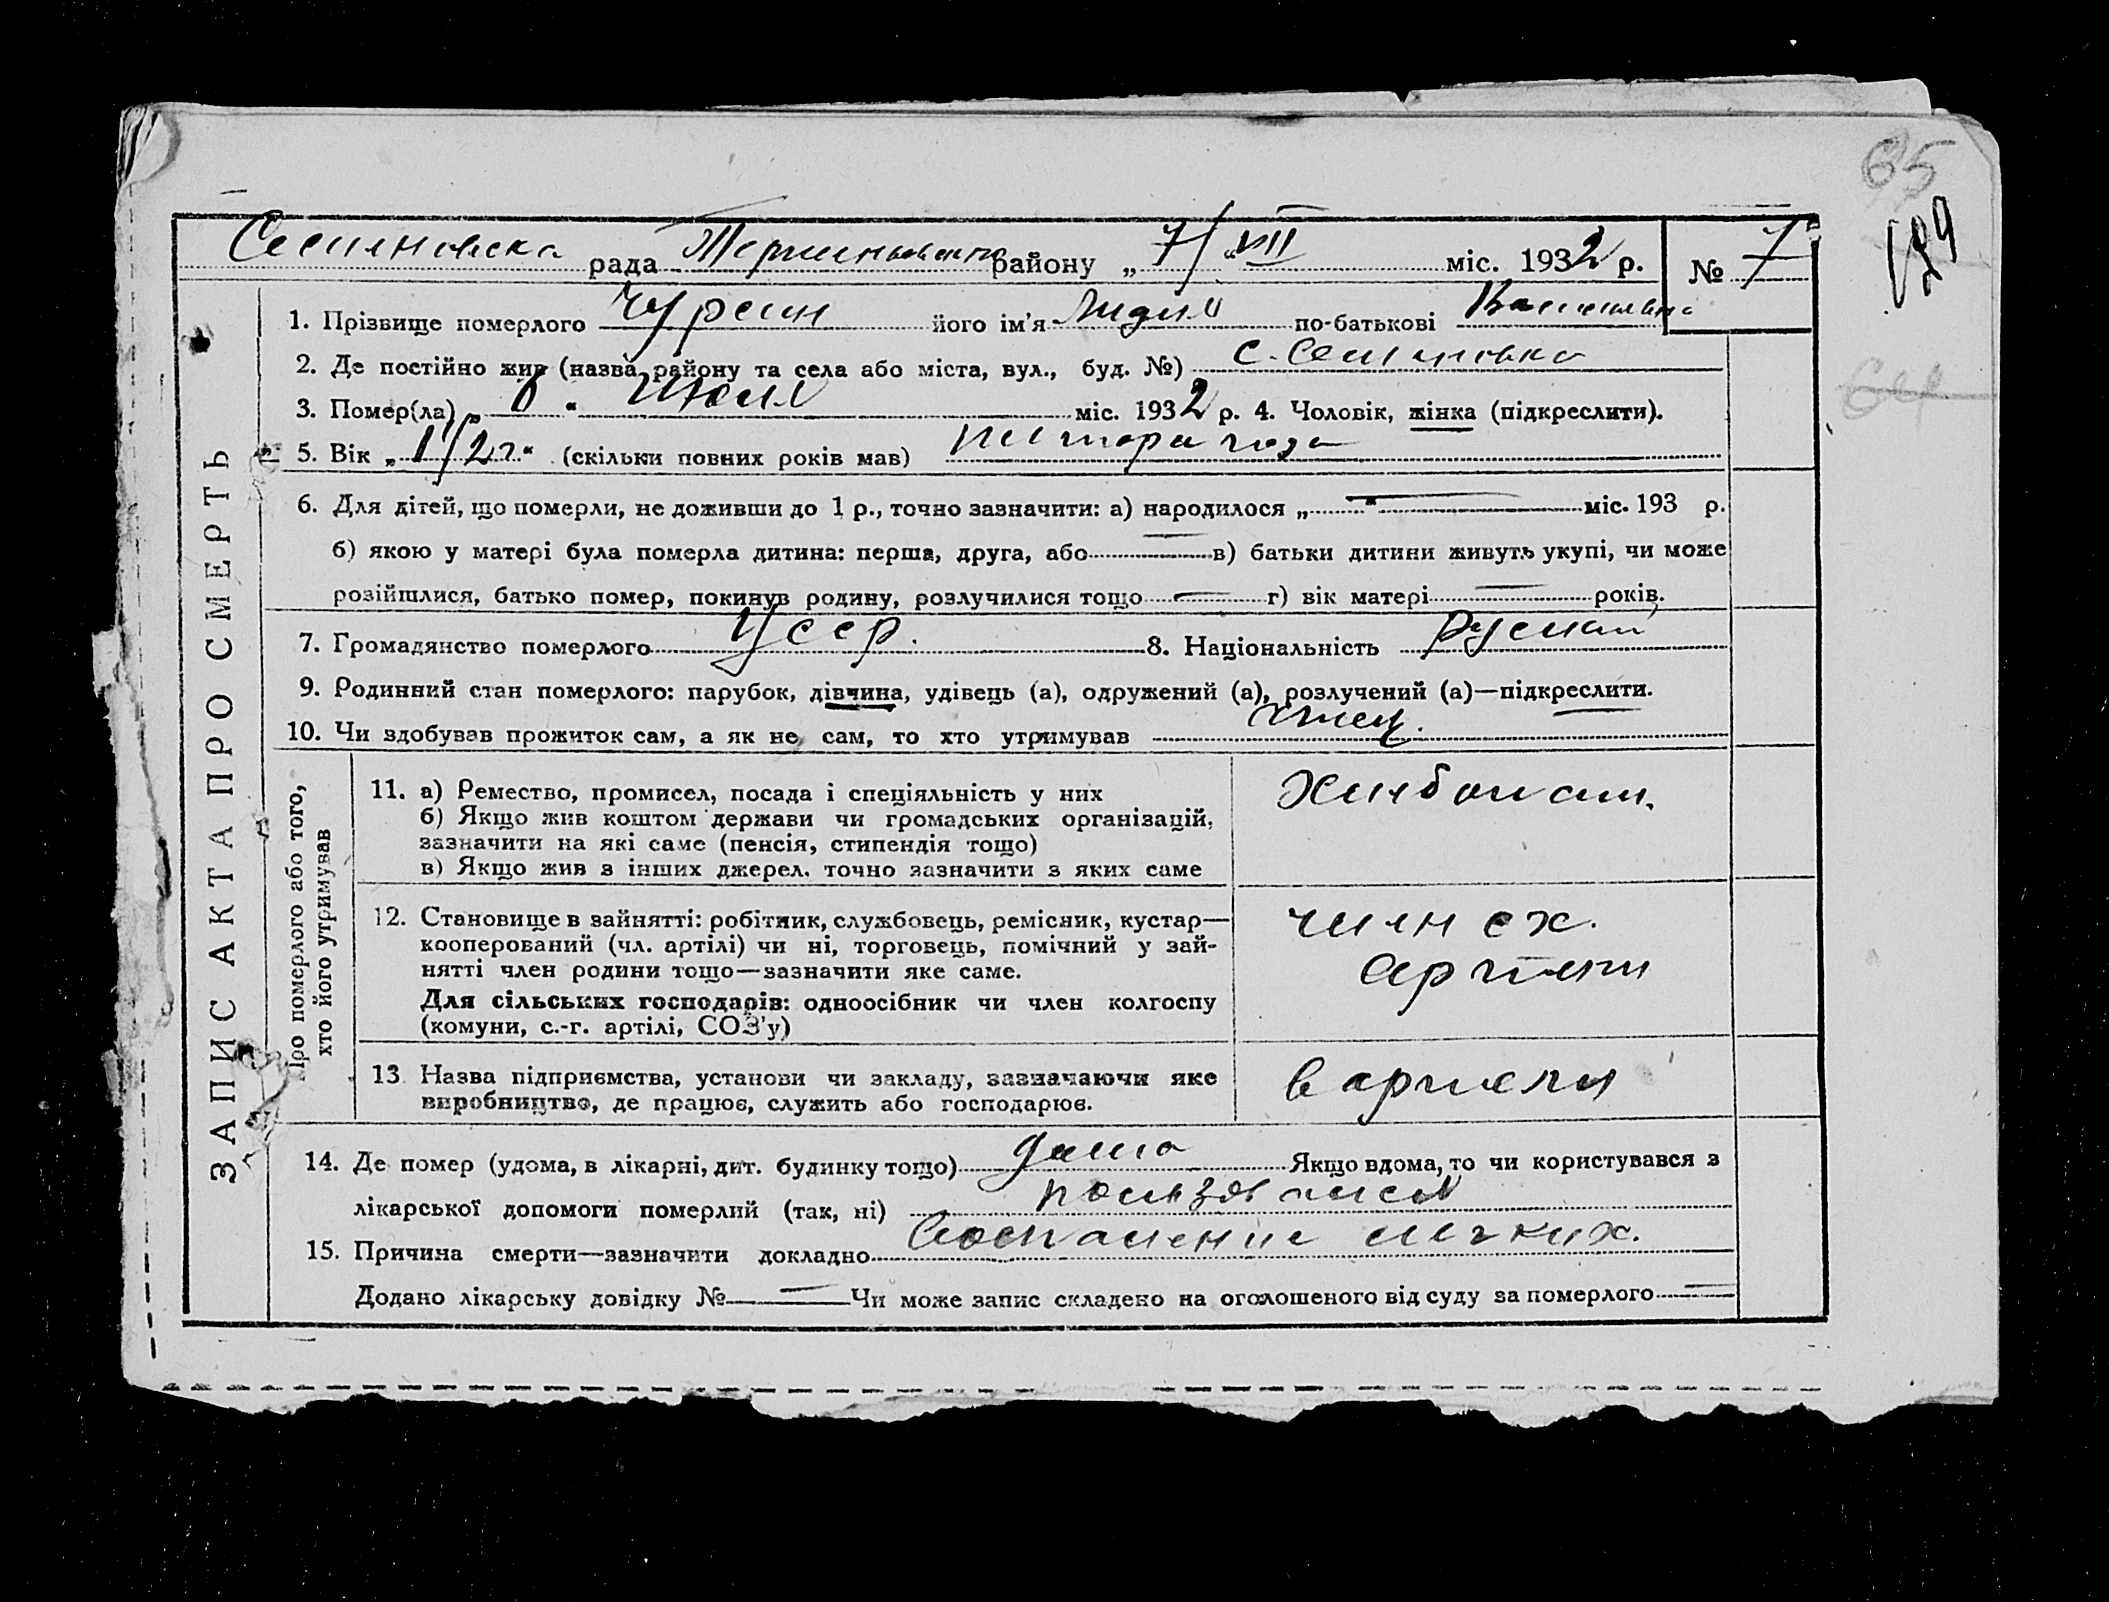 65
189
64
Семеновска рада Терпеньевского району „7/“ VII міс. 1932 р. № 7
ЗАПИС АКТА ПРО СМЕРТЬ
1. Прізвище померлого Чурсин його ім'я Лидия по-батькові Васильевна
2. Де постійно жив (назва району та села або міста, вул., буд. №) с. Семеновка
3. Помер(ла) „6“ Июля міс. 1932 р. 4. Чоловік, жінка (підкреслити).
5. Вік „1 1/2 г.“ (скільки повних років мав) полтора года
6. Для дітей, що померли, не доживши до 1 р., точно зазначити: а) народилося „ “ міс. 193 р.
б) якою у матері була померла дитина: перша, друга, або в) батьки дитини живуть укупі, чи може
розійшлися, батько помер, покинув родину, розлучилися тощо г) вік матері років.
7. Громадянство померлого Усср. 8. Національність Руский
9. Родинний стан померлого: парубок, дівчина, удівець (а), одружений (а), розлучений (а)—підкреслити.
10. Чи здобував прожиток сам, а як не сам, то хто утримував отец.
Про померлого або того,
хто його утримував
11. а) Ремество, промисел, посада і спеціяльність у них
б) Якщо жив коштом держави чи громадських організацій,
зазначити на які саме (пенсія, стипендія тощо)
в) Якщо жив з інших джерел, точно зазначити з яких саме
Хлебопаш.
12. Становище в зайнятті: робітник, службовець, ремісник, кустар—
кооперований (чл. артілі) чи ні, торговець, помічний у зай-
нятті член родини тощо—зазначити яке саме.
Для сільських господарів: одноосібник чи член колгоспу
(комуни, с.-г. артілі, СОЗ'у)
член сх.
Артели
13 Назва підприємства, установи чи закладу, зазначаючи яке
виробництво, де працює, служить або господарює.
в артели
14. Де помер (удома, в лікарні, дит. будинку тощо) дома Якщо вдома, то чи користувався з
лікарської допомоги померлий (так, ні) пользовался
15. Причина смерти—зазначити докладно Воспаление легких.
Додано лікарську довідку № Чи може запис складено на оголошеного від суду за померлого